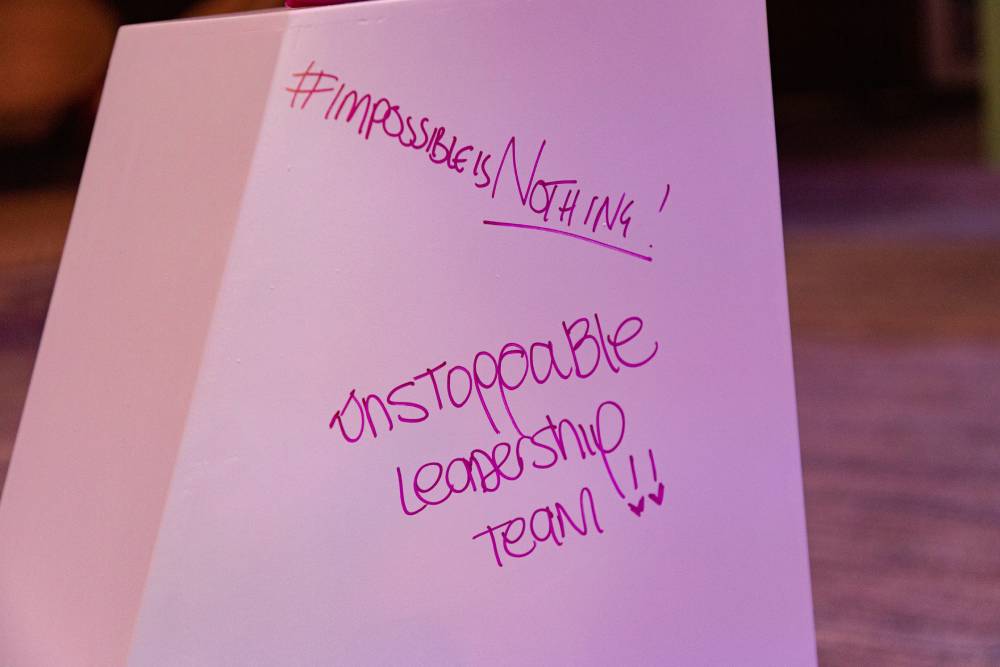 #IMPOSSIBLE IS NOTHING!
UNSTOPPABLE
LEADERSHIP
TEAM !!